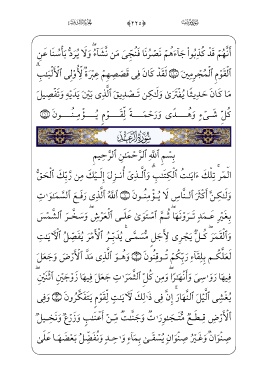 أَنَّهُمْ قَدْ كُذِبُوا۟ جَآءَهُمْ نَصْرُنَا فَنُجِّىَ مَن نَّشَآءُ وَلَا يُرَدُّ بَأْسُنَا عَنِ
ٱلْقَوْمِ ٱلْمُجْرِمِينَ لَقَدْ كَانَ فِى قَصَصِهِمْ عِبْرَةٌ لِّأُو۟لِى ٱلْأَلْبَٰبِ
مَا كَانَ حَدِيثًا يُفْتَرَىٰ وَلَٰكِن تَصْدِيقَ ٱلَّذِى بَيْنَ يَدَيْهِ وَتَفْصِيلَ
كُلِّ شَىْءٍ وَهُدًى وَرَحْمَةً لِّقَوْمٍ يُؤْمِنُونَ
سُورَةُ ٱلرَّعْدِ
بِسْمِ ٱللَّهِ ٱلرَّحْمَٰنِ ٱلرَّحِيمِ
الٓمٓر تِلْكَ ءَايَٰتُ ٱلْكِتَٰبِ وَٱلَّذِىٓ أُنزِلَ إِلَيْكَ مِن رَّبِّكَ ٱلْحَقُّ
وَلَٰكِنَّ أَكْثَرَ ٱلنَّاسِ لَا يُؤْمِنُونَ ٱللَّهُ ٱلَّذِى رَفَعَ ٱلسَّمَٰوَٰتِ
بِغَيْرِ عَمَدٍ تَرَوْنَهَا ثُمَّ ٱسْتَوَىٰ عَلَى ٱلْعَرْشِ وَسَخَّرَ ٱلشَّمْسَ
وَٱلْقَمَرَ كُلٌّ يَجْرِى لِأَجَلٍ مُّسَمًّى يُدَبِّرُ ٱلْأَمْرَ يُفَصِّلُ ٱلْءَايَٰتِ
لَعَلَّكُم بِلِقَآءِ رَبِّكُمْ تُوقِنُونَ وَهُوَ ٱلَّذِى مَدَّ ٱلْأَرْضَ وَجَعَلَ
فِيهَا رَوَٰسِىَ وَأَنْهَٰرًا وَمِن كُلِّ ٱلثَّمَرَٰتِ جَعَلَ فِيهَا زَوْجَيْنِ ٱثْنَيْنِ
يُغْشِى ٱلَّيْلَ ٱلنَّهَارَ إِنَّ فِى ذَٰلِكَ لَءَايَٰتٍ لِّقَوْمٍ يَتَفَكَّرُونَ وَفِى
ٱلْأَرْضِ قِطَعٌ مُّتَجَٰوِرَٰتٌ وَجَنَّٰتٌ مِّنْ أَعْنَٰبٍ وَزَرْعٌ وَنَخِيلٌ
صِنْوَانٌ وَغَيْرُ صِنْوَانٍ يُسْقَىٰ بِمَآءٍ وَٰحِدٍ وَنُفَضِّلُ بَعْضَهَا عَلَىٰ